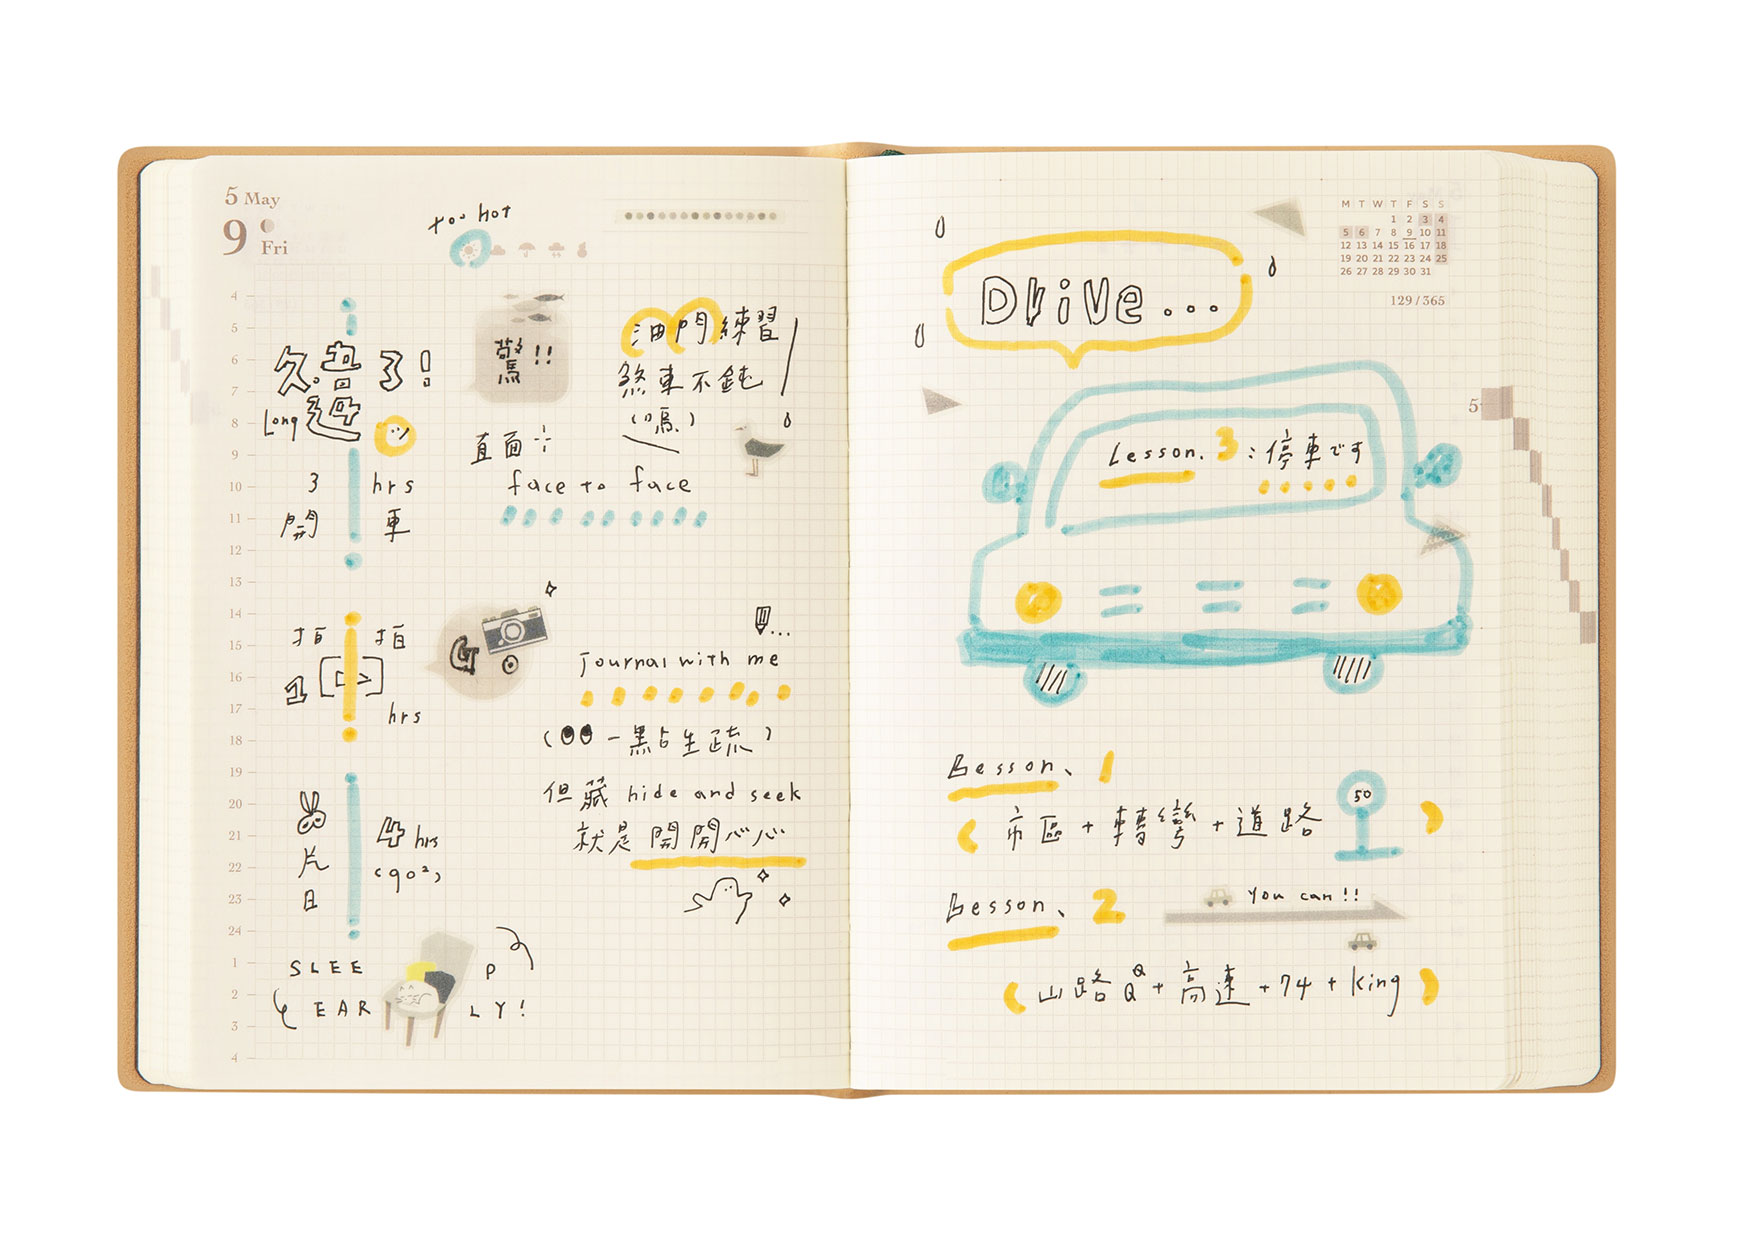 5 May
9
Fri
too hot
4
5
6
7
8
9
10
11
12
13
14
15
16
17
18
19
20
21
22
23
24
1
2
3
4
久違了!
Long
3 hrs
開車
驚!!
油門練習
煞車不鈍
(嗎)
直面
face to face
拍拍
1 hrs
Go
journal with me
(一點生疏)
但藏 hide and seek
就是開開心心
片
日
4 hrs
(go²)
SLEEP
EARLY!
Drive...
M T W T F S S
1 2 3 4
5 6 7 8 9 10 11
12 13 14 15 16 17 18
19 20 21 22 23 24 25
26 27 28 29 30 31
129/365
5
Lesson. 3 : 停車です
Lesson、1
(市區+轉彎+道路)
50
Lesson、2
You can!!
(山路QQ+高速+74+king)